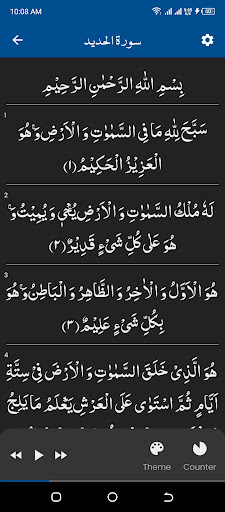 10:08 AM
سورة الحديد
بِسْمِ اللهِ الرَّحْمٰنِ الرَّحِيْمِ
1
سَبَّحَ لِلّٰهِ مَا فِى السَّمٰوٰتِ وَ الْاَرْضِۚ وَ هُوَ
الْعَزِيْزُ الْحَكِيْمُ (۱)
2
لَهٗ مُلْكُ السَّمٰوٰتِ وَ الْاَرْضِۚ يُحْیٖ وَ يُمِيْتُۚ وَ
هُوَ عَلٰى كُلِّ شَیْءٍ قَدِيْرٌ (۲)
3
هُوَ الْاَوَّلُ وَ الْاٰخِرُ وَ الظَّاهِرُ وَ الْبَاطِنُۚ وَ هُوَ
بِكُلِّ شَیْءٍ عَلِيْمٌ (۳)
4
هُوَ الَّذِیْ خَلَقَ السَّمٰوٰتِ وَ الْاَرْضَ فِیْ سِتَّةِ
اَيَّامٍ ثُمَّ اسْتَوٰى عَلَى الْعَرْشِؕ يَعْلَمُ مَا يَلِجُ
Theme
Counter